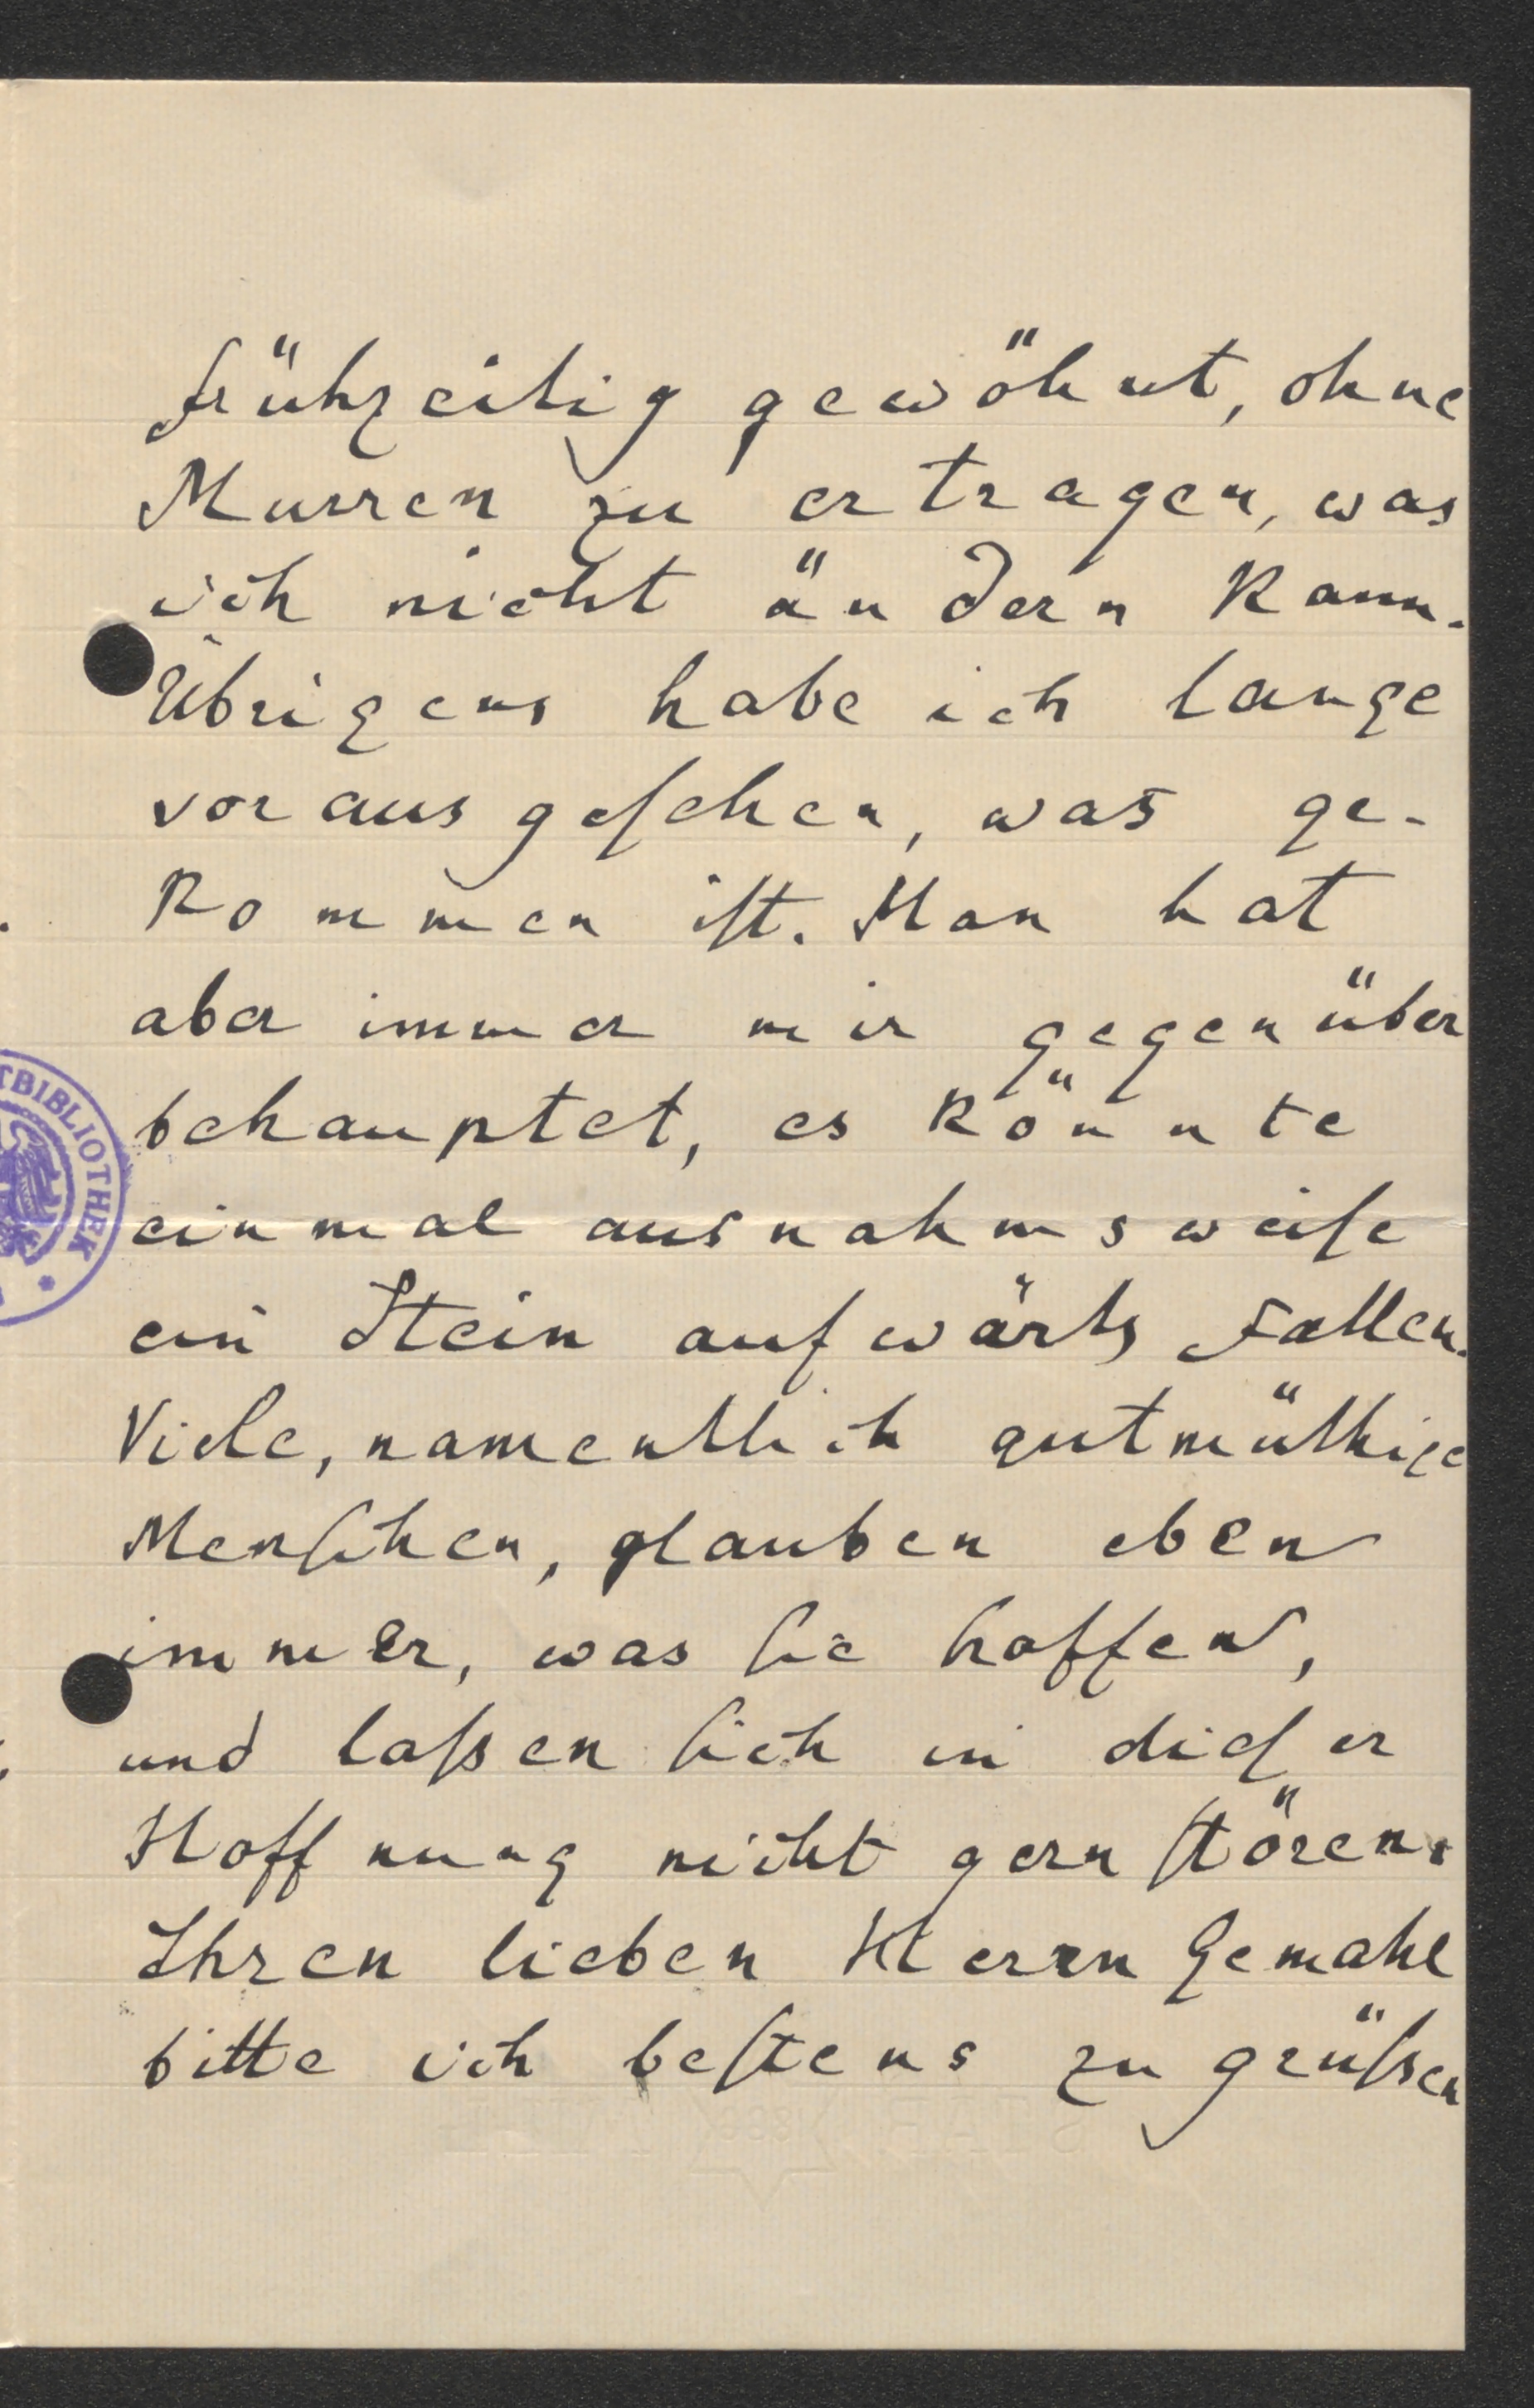 frühzeitig gewöhnt, ohne
Murren zu ertragen, was
ich nicht ändern kann.
Übrigens habe ich lange
vorausgeſehen, was ge-
kommen iſt. Man hat
aber immer mir gegenüber
behauptet, es könnte
einmal ausnahmsweiſe
ein Stein aufwärts fallen.
Viele, namentlich gutmüthige
Menſchen, glauben eben
immer, was ſie hoffen,
und laſsen ſich in dieſer
Hoffnung nicht gern ſtören.
Ihren lieben Herrn Gemahl
bitte ich beſtens zu grüſsen
TBIBLIOTHEK